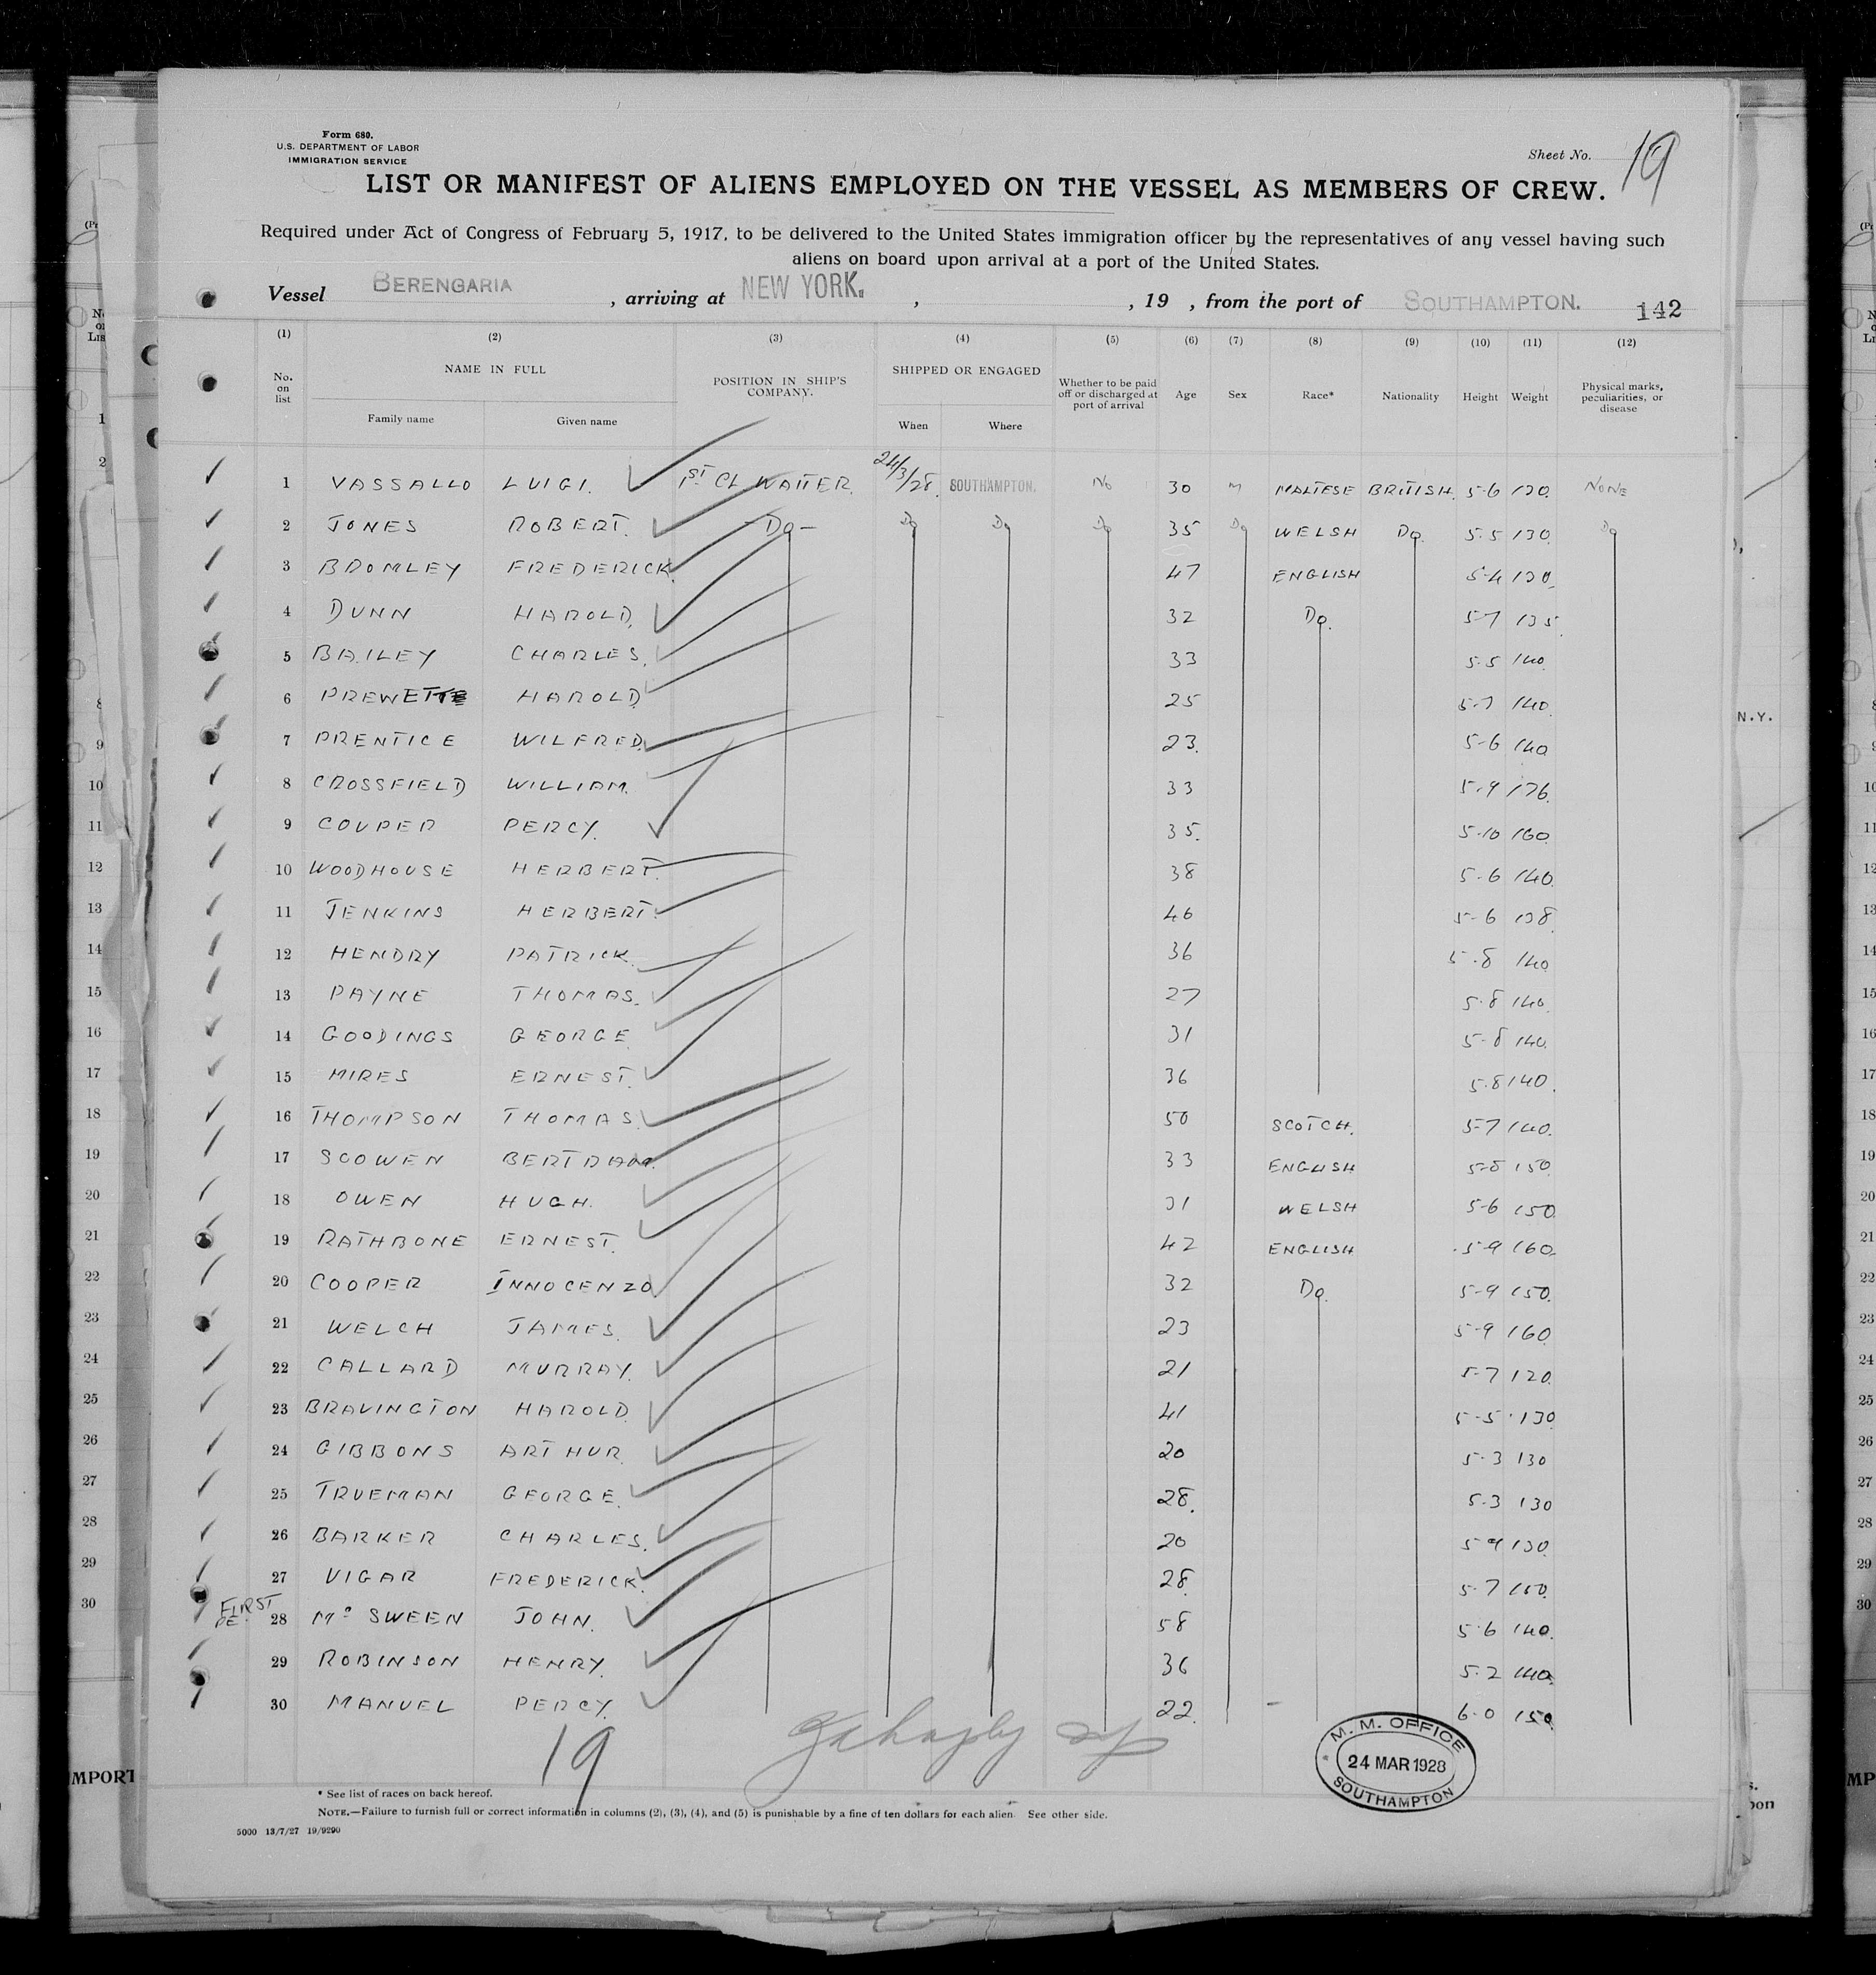 Form 680.
U.S. DEPARTMENT OF LABOR
IMMIGRATION SERVICE
Sheet No. 19
LIST OR MANIFEST OF ALIENS EMPLOYED ON THE VESSEL AS MEMBERS OF CREW.
Required under Act of Congress of February 5, 1917, to be delivered to the United States immigration officer by the representatives of any vessel having such
aliens on board upon arrival at a port of the United States.
Vessel BERENGARIA , arriving at NEW YORK. , , 19 , from the port of SOUTHAMPTON. 142
(1) (2) (3) (4) (5) (6) (7) (8) (9) (10) (11) (12)
No. on list NAME IN FULL Family name Given name POSITION IN SHIP'S COMPANY. SHIPPED OR ENGAGED When Where Whether to be paid off or discharged at port of arrival Age Sex Race* Nationality Height Weight Physical marks, peculiarities, or disease
1 VASSALLO LUIGI. 1ST CL WAITER. 24/3/28. SOUTHAMPTON. No 30 M MALTESE BRITISH. 5-6 130. NONE
2 JONES ROBERT. -Do- Do Do Do 35 Do WELSH Do. 5.5 130. Do
3 BROMLEY FREDERICK. 47 ENGLISH 5-4 130.
4 DUNN HAROLD. 32 Do. 5-7 135.
5 BAILEY CHARLES. 33 5.5 140.
6 PREWETT HAROLD. 25 5-7 140.
7 PRENTICE WILFRED. 23. 5-6 140
8 CROSSFIELD WILLIAM. 33 5.9 176.
9 COUPER PERCY. 35. 5-10 160.
10 WOODHOUSE HERBERT. 38 5.6 140.
11 JENKINS HERBERT. 46 5-6 138.
12 HENDRY PATRICK. 36 5.8 140.
13 PAYNE THOMAS. 27 5.8 140.
14 GOODINGS GEORGE. 31 5-8 140.
15 MIRES ERNEST. 36 5.8 140.
16 THOMPSON THOMAS. 50 SCOTCH. 5-7 140.
17 SCOWEN BERTRAM. 33 ENGLISH 5-8 150.
18 OWEN HUGH. 31 WELSH 5-6 150.
19 RATHBONE ERNEST. 42 ENGLISH 5-9 160.
20 COOPER INNOCENZO 32 Do. 5-9 150.
21 WELCH JAMES. 23 5-9 160.
22 CALLARD MURRAY. 21 5-7 120.
23 BRAVINGTON HAROLD. 41 5-5 130.
24 GIBBONS ARTHUR. 20 5.3 130
25 TRUEMAN GEORGE. 28. 5.3 130
26 BARKER CHARLES. 20 5 9 130.
27 VIGAR FREDERICK. 28. 5.7 150.
FIRST 28 Mc SWEEN JOHN. 58 5.6 140.
29 ROBINSON HENRY. 36 5.2 140.
30 MANUEL PERCY. 22. - 6.0 150.
19
M. M. OFFICE
24 MAR 1928
SOUTHAMPTON
* See list of races on back hereof.
NOTE.—Failure to furnish full or correct information in columns (2), (3), (4), and (5) is punishable by a fine of ten dollars for each alien. See other side.
5000 13/7/27 19/9290
N.Y.